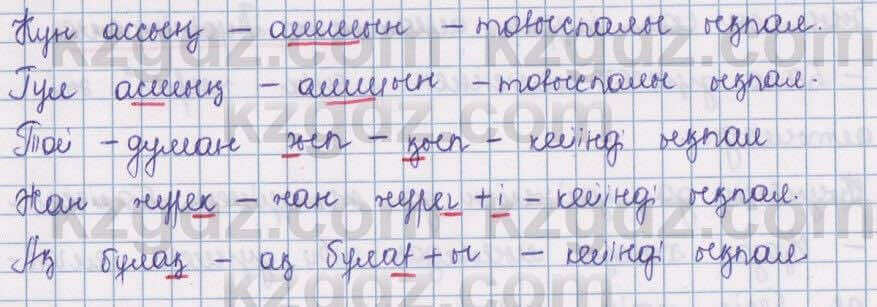 Күн ассың – ашшын – тоғыспалы ықпал.
Гүл ашың – ашшын – тоғыспалы ықпал.
Той – думан жып – қып – кейінді ықпал
Жан жүрек – жан жүрег + і – кейінді ықпал.
Ақ бұлақ – ақ бұлағ + ы – кейінді ықпал